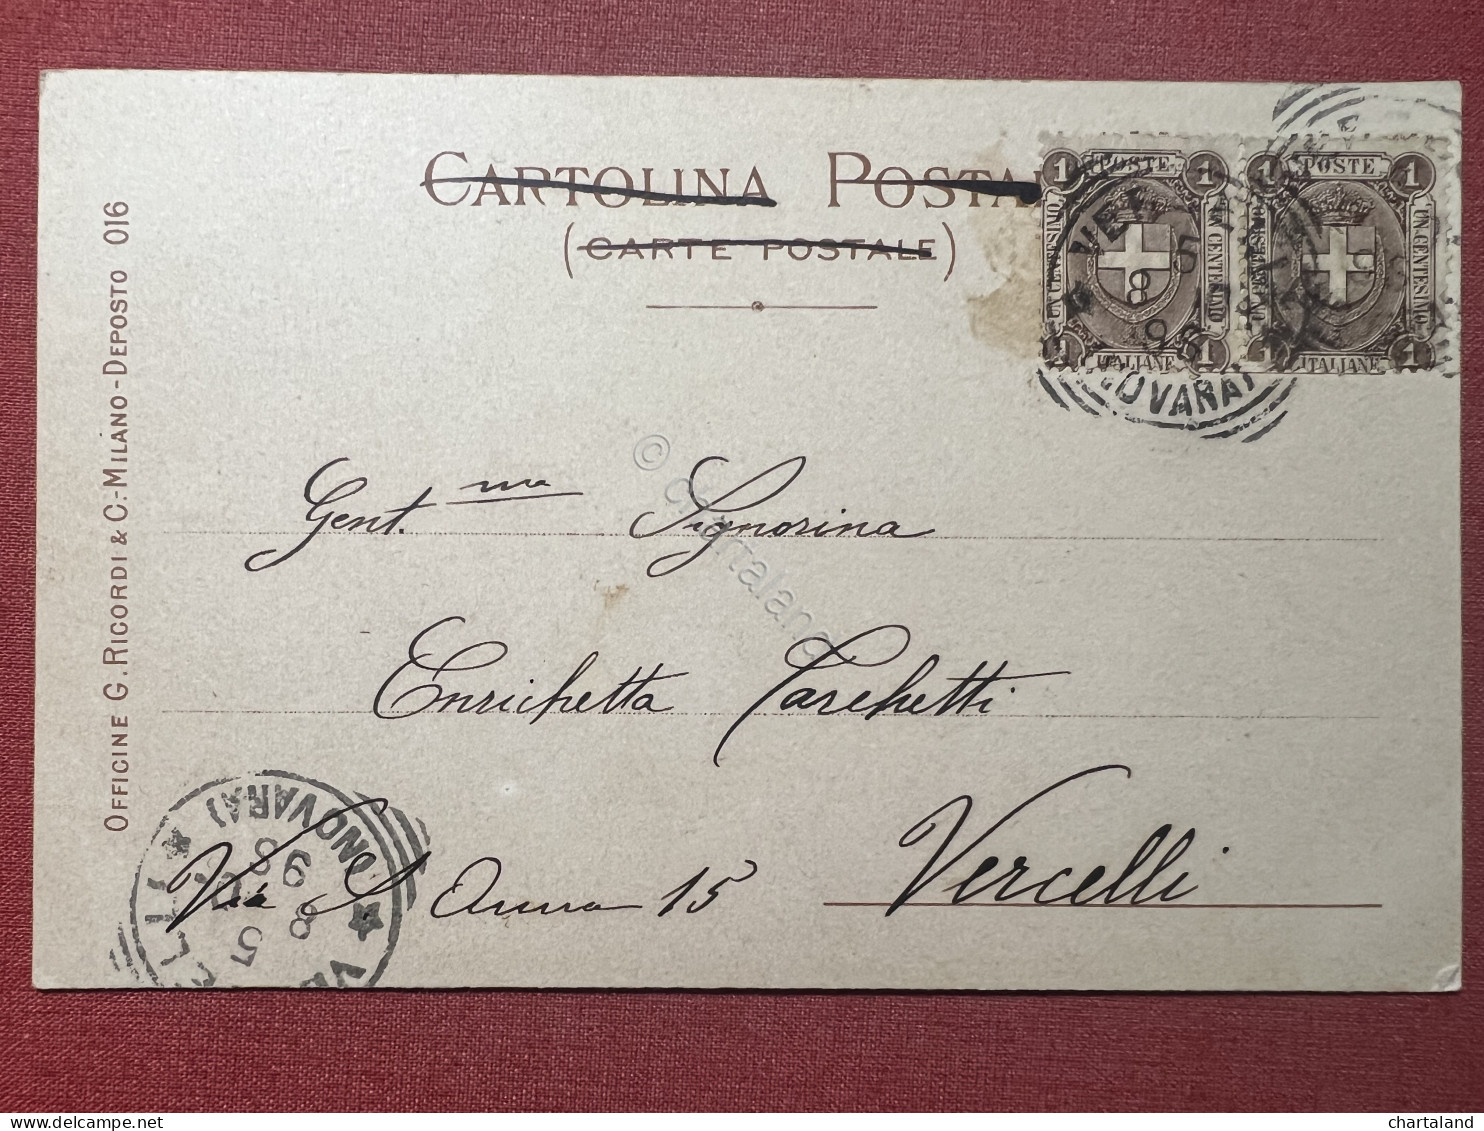 CARTOLINA POSTA
(CARTE POSTALE)
OFFICINE G. RICORDI & C.-MILANO-DEPOSTO 016
1 POSTE 1
UN CENTESIMO UN CENTESIMO
1 ITALIANE 1
1 POSTE 1
UN CENTESIMO
1 ITALIANE 1
5
8
98
NOVARA)
Gent.ma Signorina
Enrichetta Tarchetti
Vercelli
Via S. Anna 15
(NOVARA)
8 5
98
© chartaland
chartaland